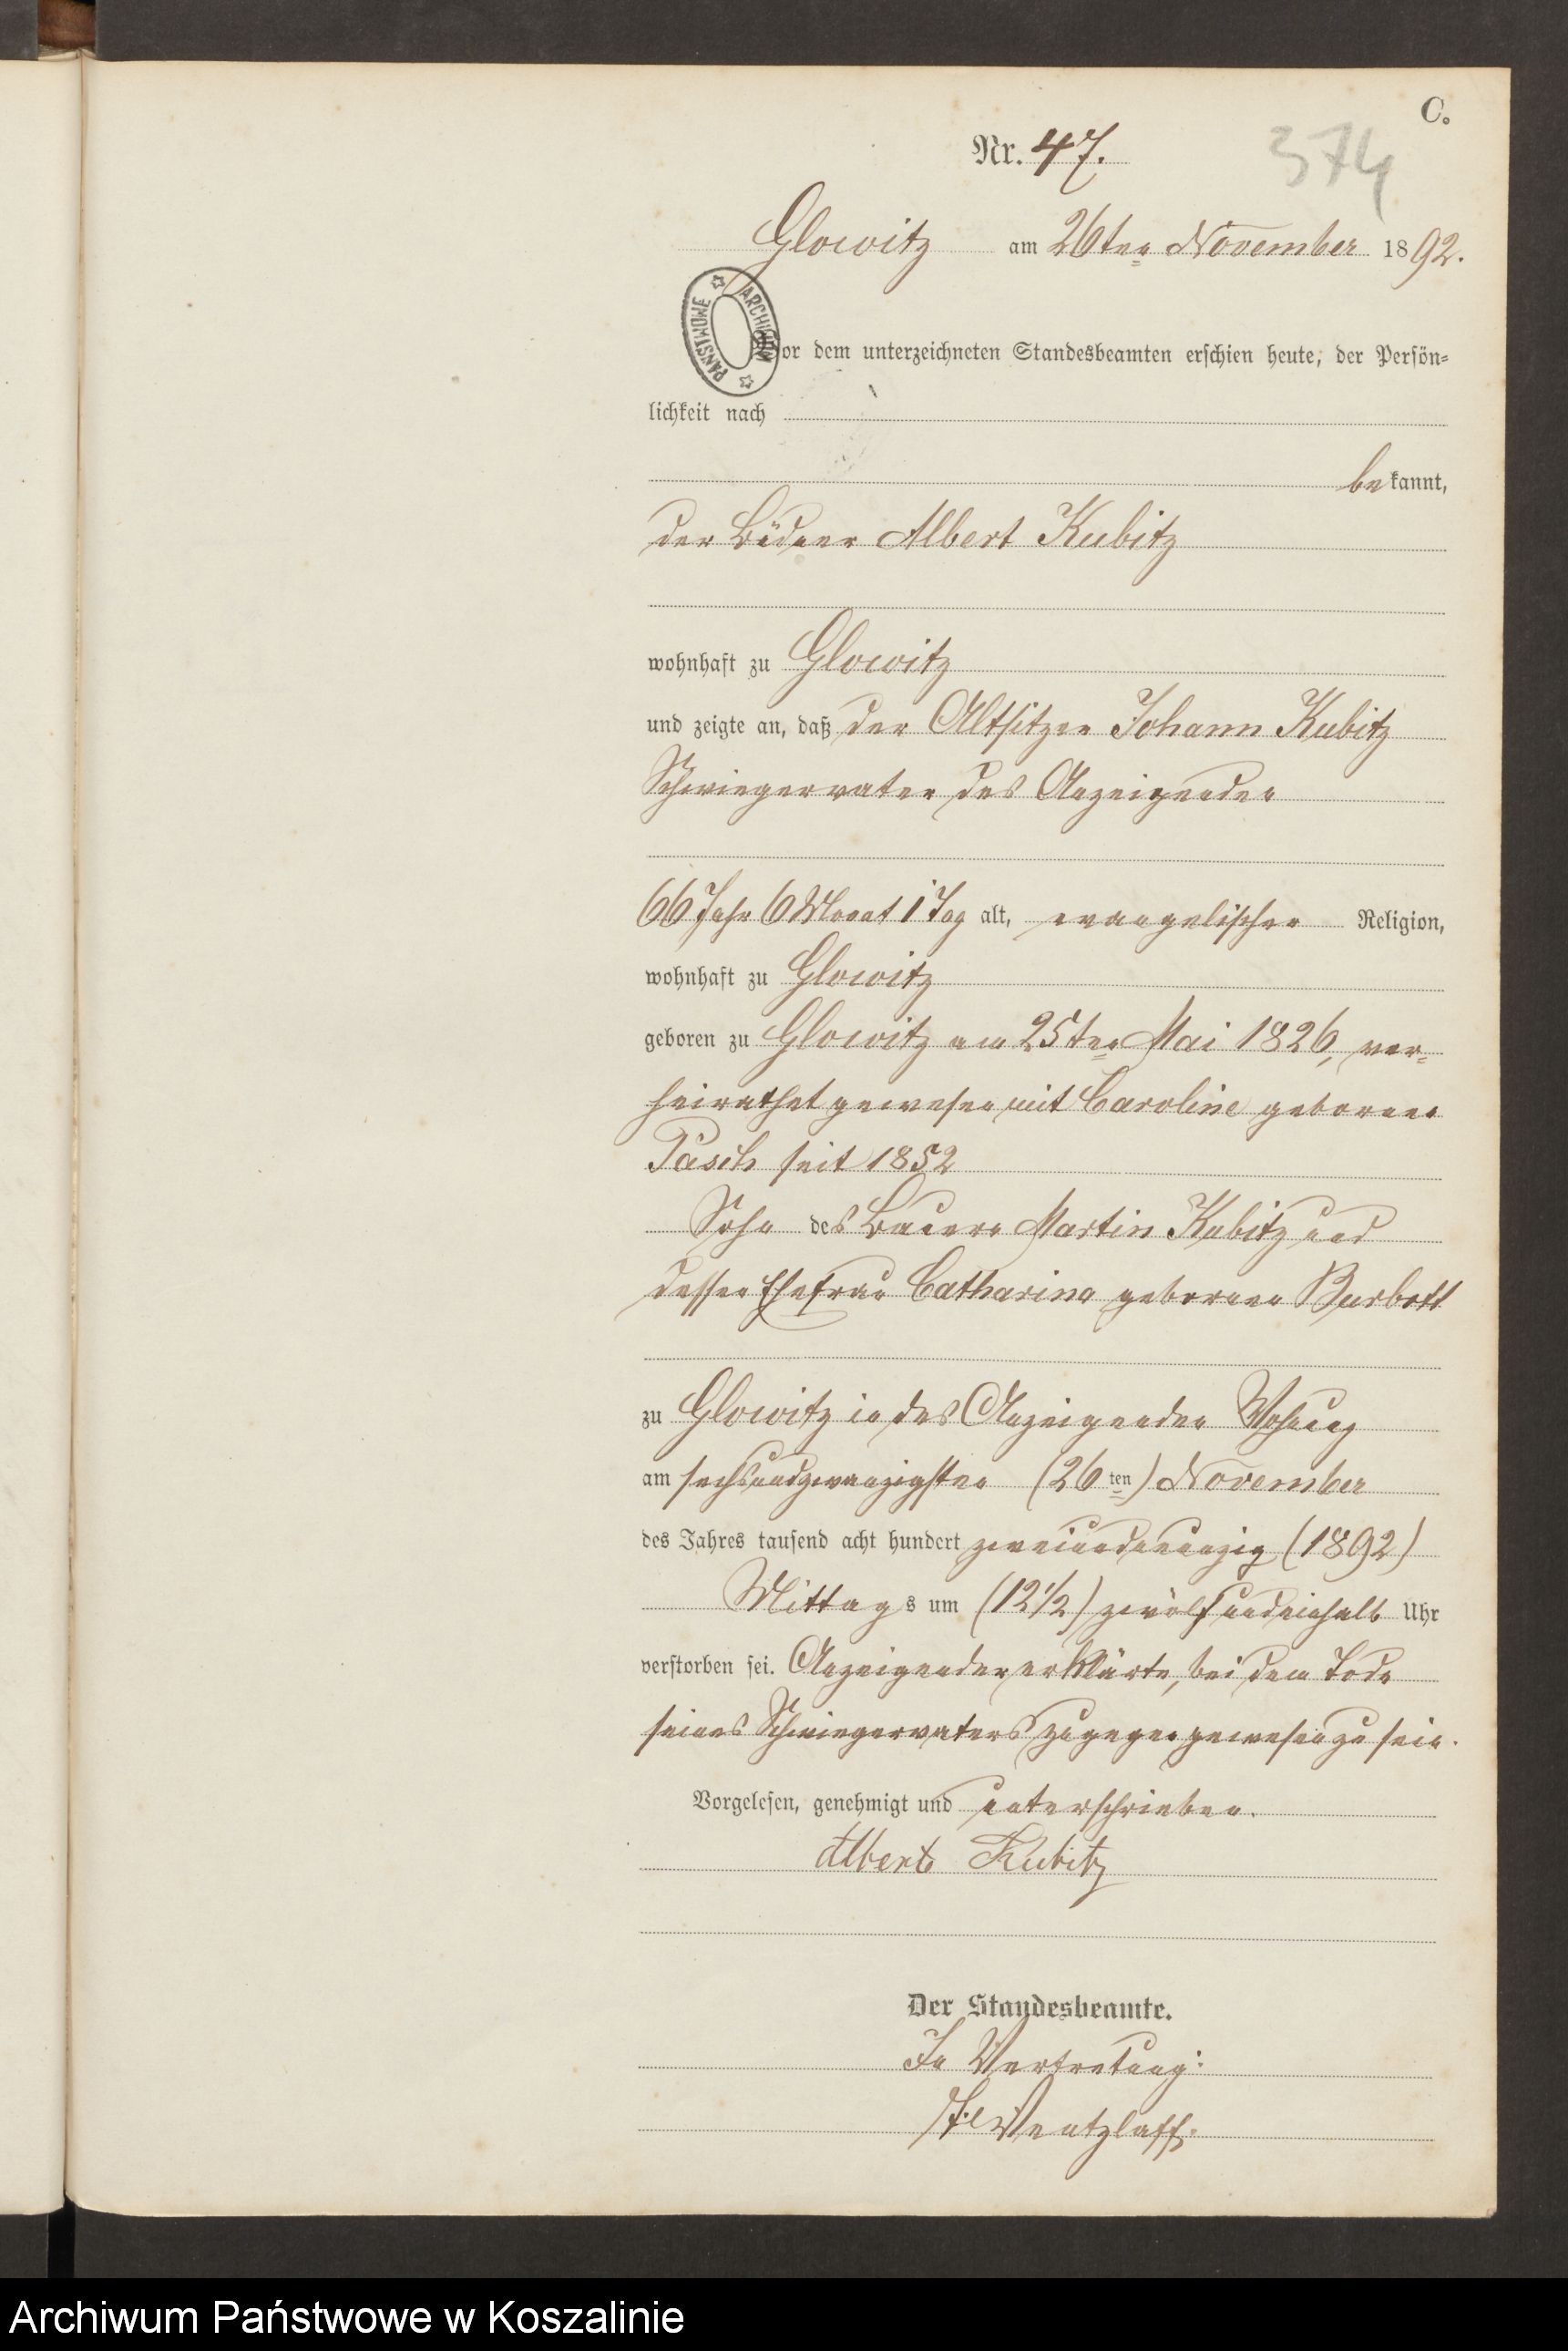 C.
Nr. 47.
374
Glowitz am 26ten November 1892.
ARCHIWUM PAŃSTWOWE
Vor dem unterzeichneten Standesbeamten erschien heute, der Persön=
lichkeit nach
bekannt,
der Büdner Albert Kubitz
wohnhaft zu Glowitz
und zeigte an, daß der Altsitzer Johann Kubitz
Schwiegervater des Anzeigenden
66 Jahr 6 Monat 1 Tag alt, evangelischer Religion,
wohnhaft zu Glowitz
geboren zu Glowitz am 25ten Mai 1826, ver=
heirathet gewesen mit Caroline geborene
Pasch seit 1852
Sohn des Bauern Martin Kubitz und
dessen Ehefrau Catharina geborene
zu Glowitz in des Anzeigenden Wohnung
am sechsundzwanzigsten (26ten) November
des Jahres tausend acht hundert zweiundneunzig (1892)
Mittags um (12 1/2) zwölfundeinhalb Uhr
verstorben sei. Anzeigender erklärte, bei dem Tode
seines Schwiegervaters zugegen gewesen zu sein.
Vorgelesen, genehmigt und unterschrieben.
Albert Kubitz
Der Standesbeamte.
In Vertretung:
Wentzlaff.
Archiwum Państwowe w Koszalinie